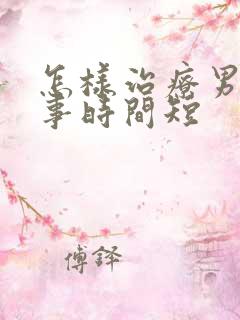 怎樣治療男
事時間短
傅鐸